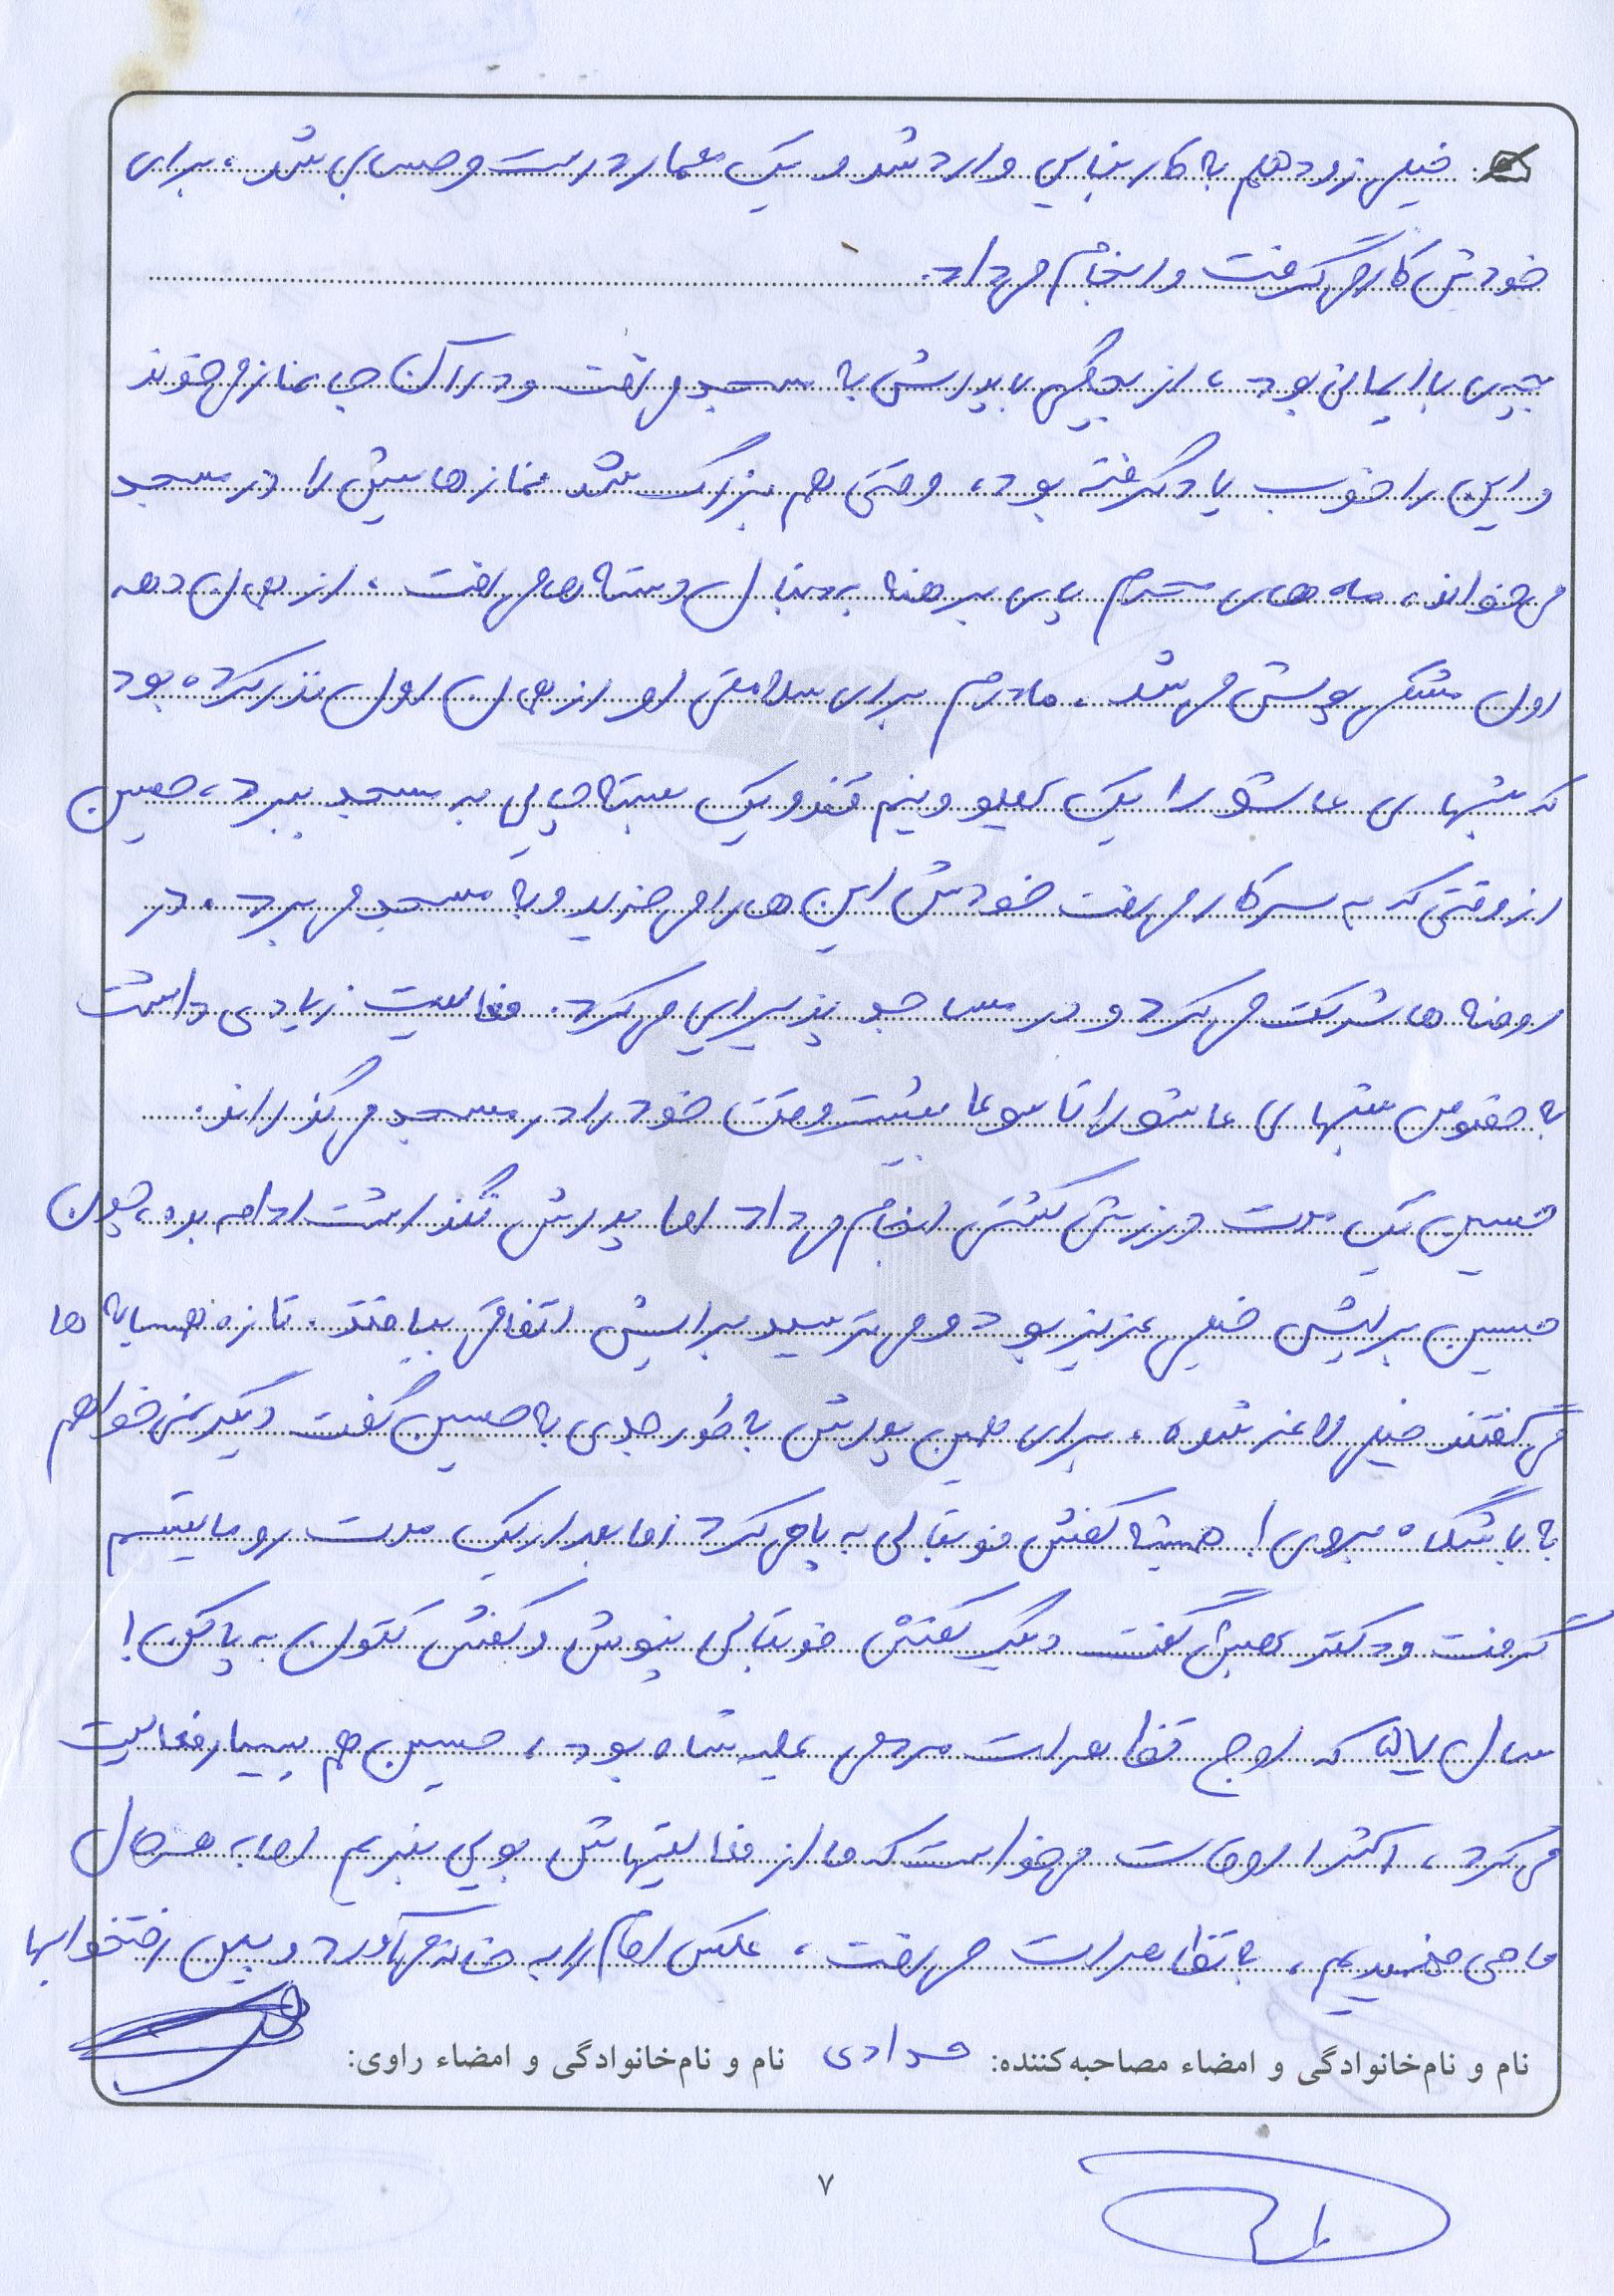 خیلی زود هم به کار بنایی وارد شد و یک معمار درست و حسابی شد، برای
خودش کار می‌گرفت و انجام می‌داد.
بچه‌ی با ایمانی بود، از بچگی با پدرش به مسجد می‌رفت و در آن جا نماز می‌خوند
و این را خوب یاد گرفته بود، وقتی هم بزرگ شد نمازهایش را در مسجد
می‌خواند، ماه‌های محرم پای برهنه به دنبال دسته‌ها می‌رفت، از همان دهه
اول مشکی پوش می‌شد. مادرم برای سلامتی او از همان اول نذر کرده بود
که شبهای عاشورا یک کیلو و نیم قند و یک بسته چایی به مسجد ببرد، حسین
از وقتی که به سر کار می‌رفت خودش این ها را می‌خرید و به مسجد می‌برد. در
روضه ها شرکت می‌کرد و در مساجد پذیرایی می‌کرد. فعالیت زیادی داشت
به خصوص شبهای عاشورا تاسوعا بیشتر وقت خود را در مسجد می‌گذراند.
حسین یک مدت ورزش کشتی انجام می‌داد اما پدرش نگذاشت ادامه بده، چون
حسین برایش خیلی عزیز بود و می‌ترسید برایش اتفاقی بیافتد. تازه همسایه ها
می‌گفتند خیلی لاغر شده. برای همین پدرش به طور جدی به حسین گفت دیگر نمی‌خواهم
به باشگاه بروی! همیشه کفش فوتبالی به پا می‌کرد اما بعد از یک مدت روماتیسم
گرفت و دکتر بهش گفت دیگر کفش فوتبالی نپوش و کفش کتونی به پا کن!
سال ۵۷ که اوج تظاهرات مردمی علیه شاه بود، حسین هم بسیار فعالیت
می‌کرد، اکثر اوقات می‌خواست که ما از فعالیتهاش بویی نبریم اما به هر حال
ما می‌فهمیدیم، به تظاهرات می‌رفت، عکس امام را به خانه می‌آورد و بین رختخوابها
نام و نام‌خانوادگی و امضاء مصاحبه‌کننده: مرادی نام و نام‌خانوادگی و امضاء راوی:
۷